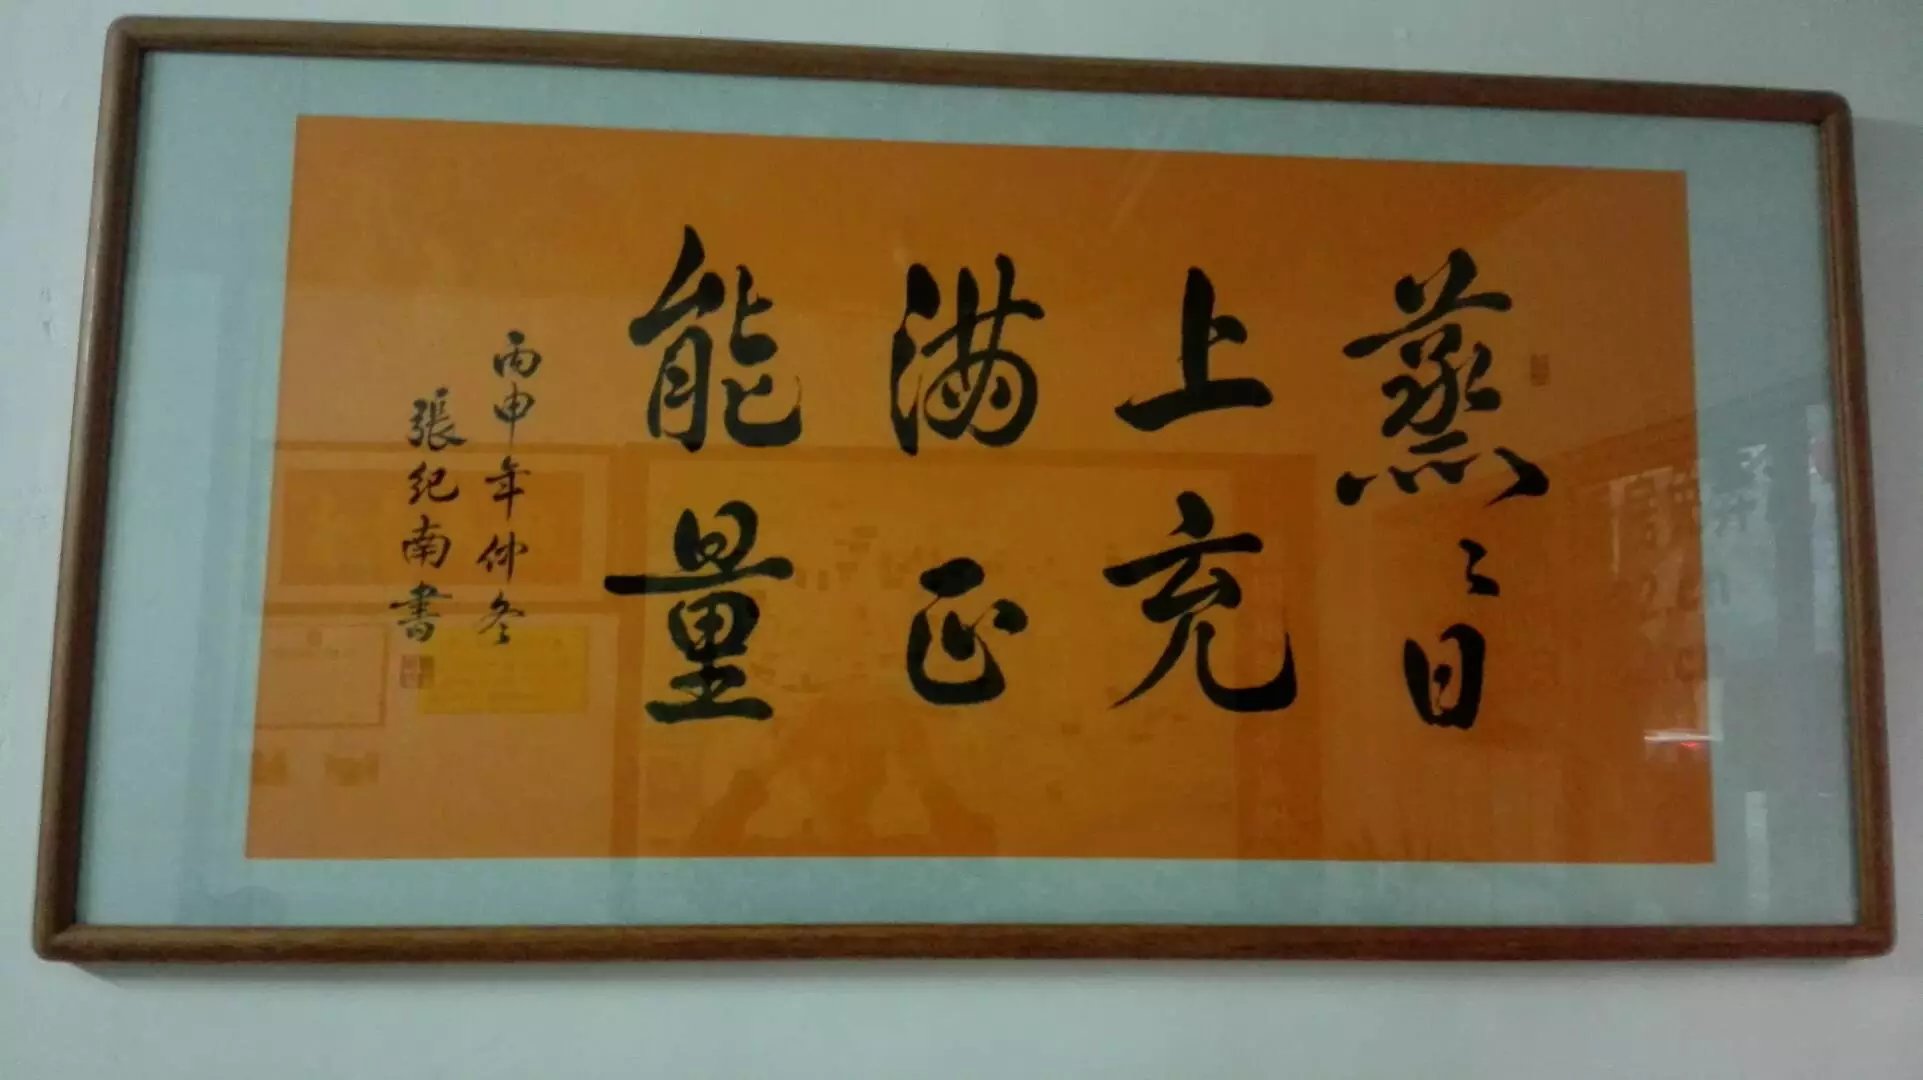 蒸〻日
上充
满正
能量
丙申年仲冬
張纪南書